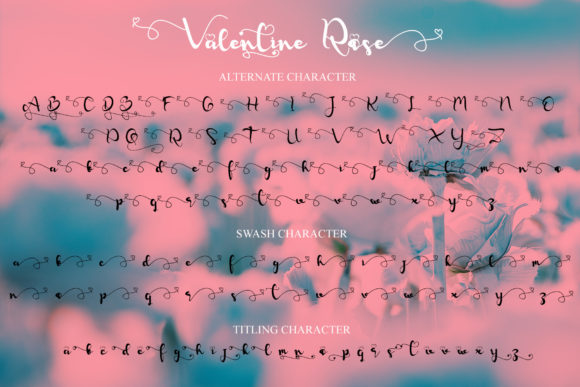 Valentine Rose
ALTERNATE CHARACTER
A B C D E F G H I J K L M N O
P Q R S T U V W X Y Z
a b c d e f g h i j k l m n o
p q r s t u v w x y z
SWASH CHARACTER
a b c d e f g h i j k l m
n o p q r s t u v w x y z
TITLING CHARACTER
a b c d e f g h i j k l m n o p q r s t u v w x y z